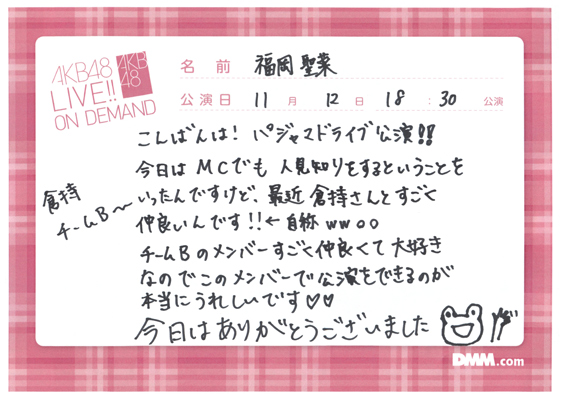 AKB48
LIVE!!
ON DEMAND
AKB
48
名前 福岡聖菜
公演日 11月 12日 18:30 公演
こんばんは! パジャマドライブ公演!!
今日はMCでも人見知りをするということを
いったんですけど、最近倉持さんとすごく
仲良いんです!!←自称wwoo
倉持
チームB〜
チームBのメンバーすごく仲良くて大好き
なのでこのメンバーで公演をできるのが
本当にうれしいです♡♡
今日はありがとうございました
DMM.com